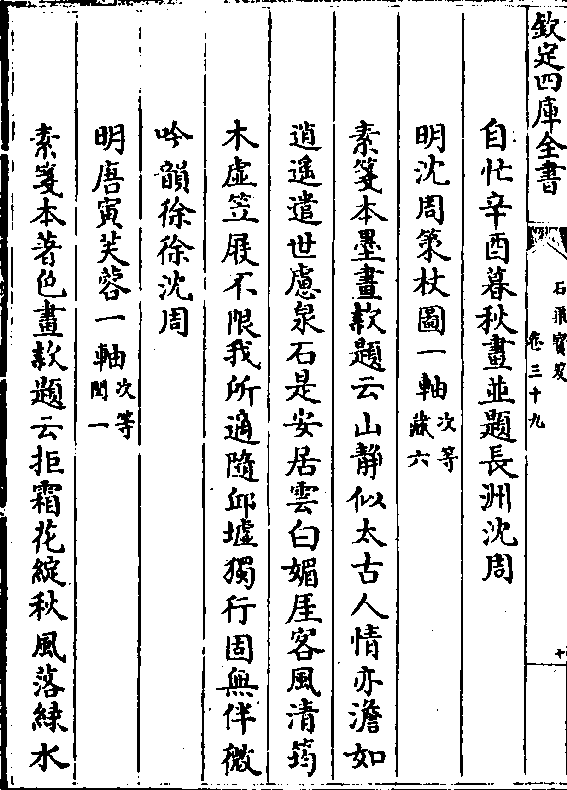 欽定四庫全書
石渠寶笈
卷三十九
十
自忙辛酉暮秋畫並題長洲沈周
明沈周策杖圖一軸次等藏六
素箋本墨畫款題云山静似太古人情亦澹如
逍遙遣世慮泉石是安居雲白媚厓客風清筠
木虛笠屐不限我所適隨邱墟獨行固無伴微
吟韻徐徐沈周
明唐寅芙蓉一軸次等閏一
素箋本著色畫款題云拒霜花綻秋風落綠水